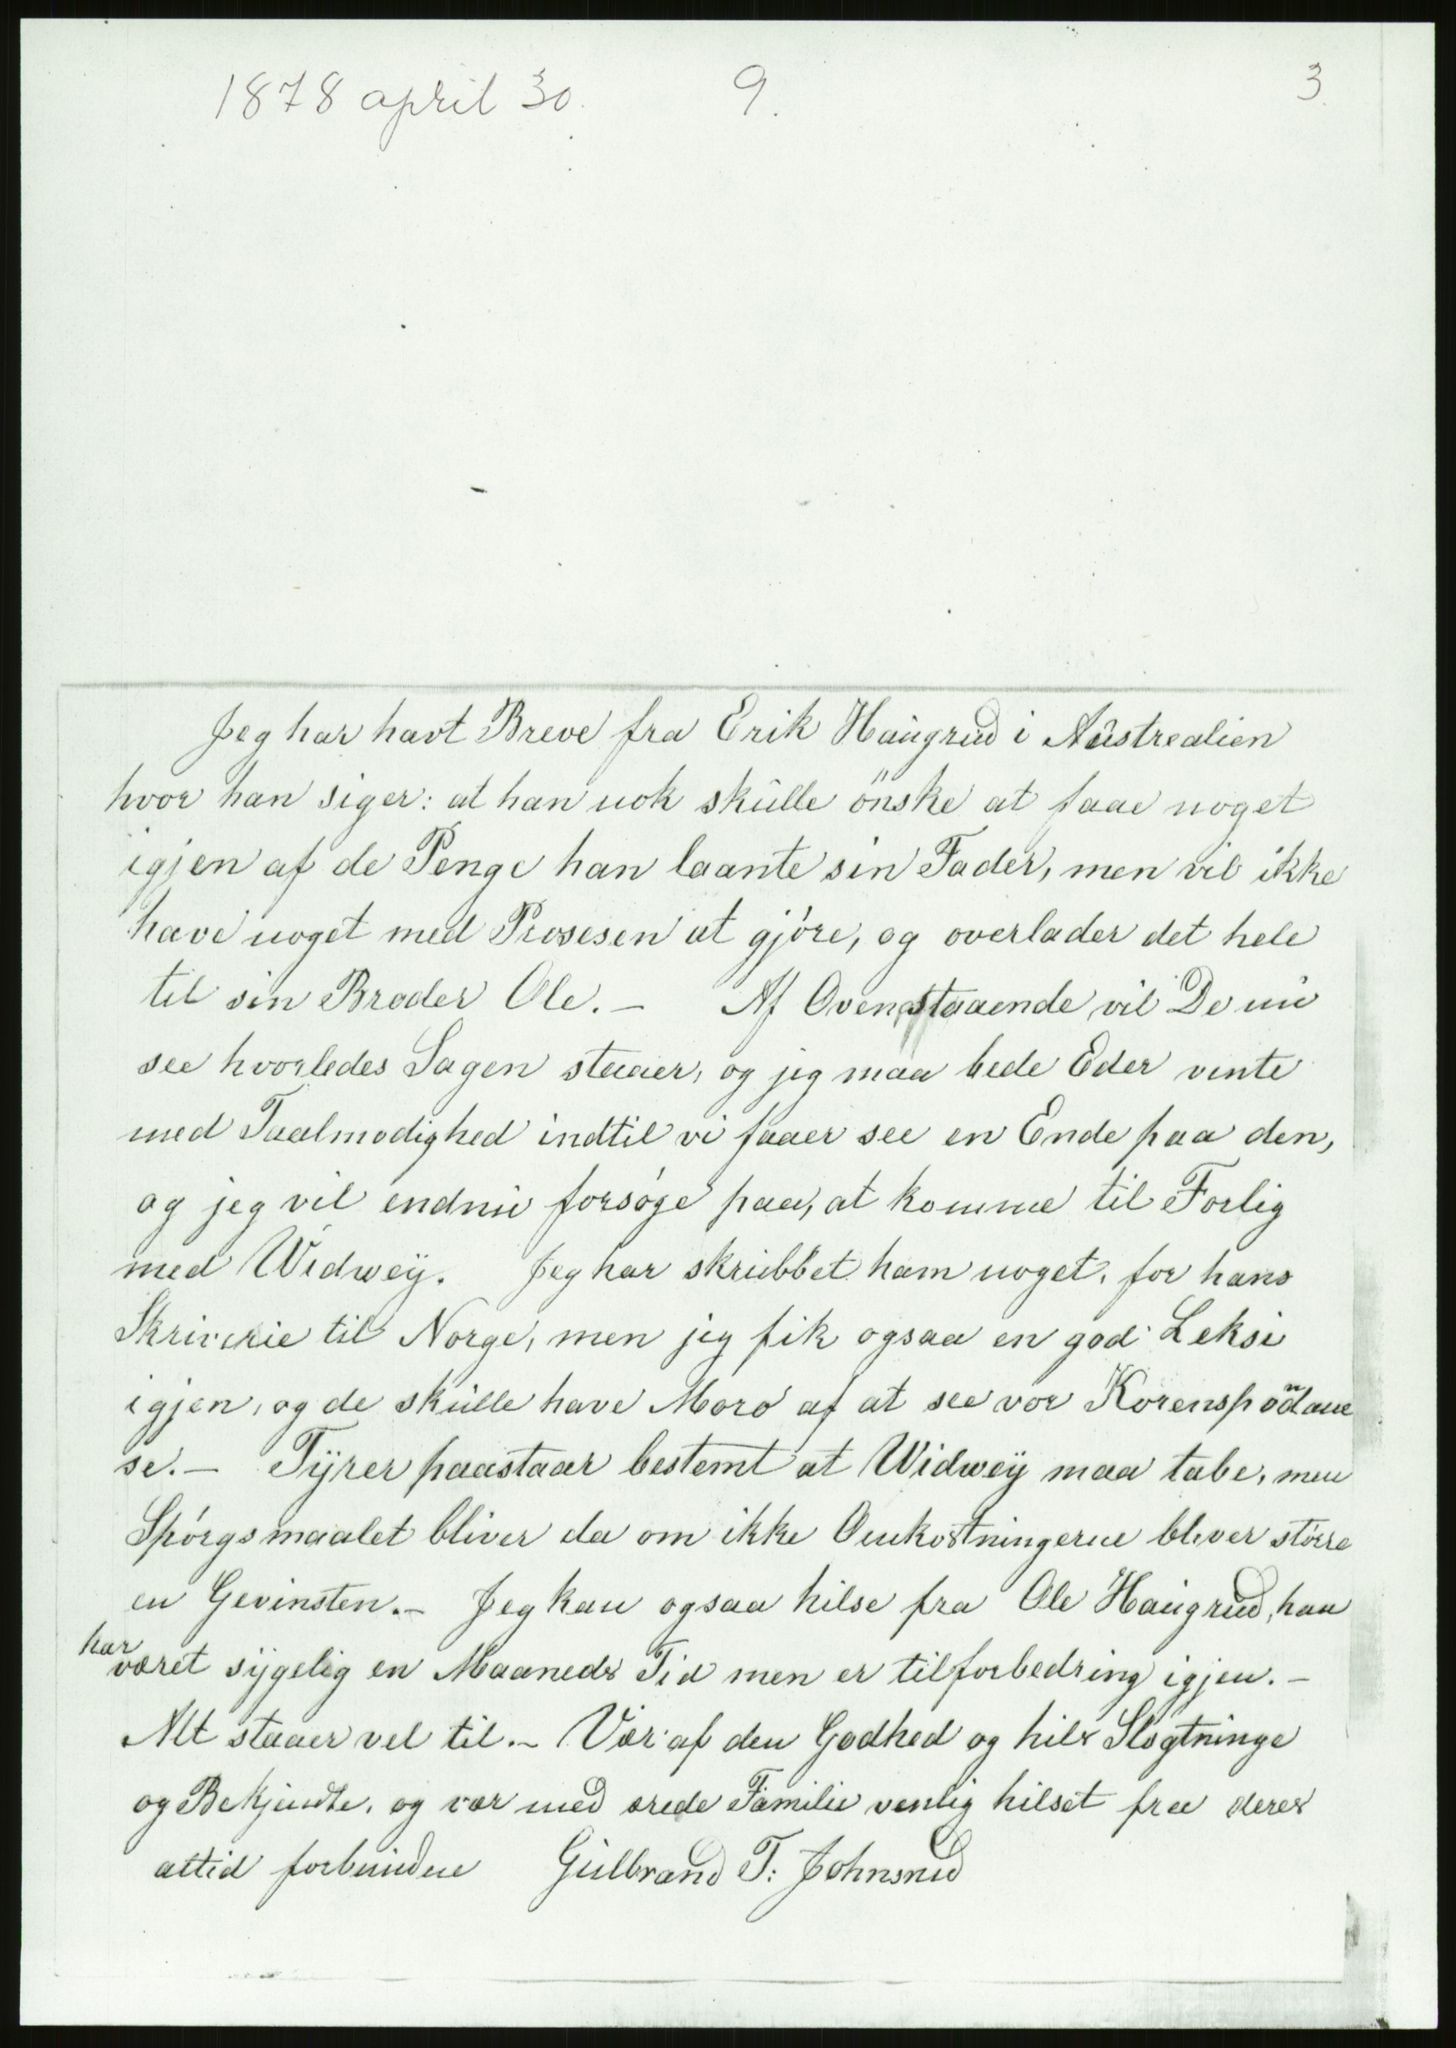 1878 april 30. 9. 3.
Jeg har havt Breve fra Erik Haugrud i Austrealien
hvor han siger: at han nok skulle önske at faae noget
igjen af de Penge han laante sin Fader, men vil ikke
have noget med Prosesen at gjøre, og overlader det hele
til sin Broder Ole. — Af Ovenstaaende vil De nu
see hvorledes Sagen staaer, og jeg maa bede Eder vente
med Taalmodighed indtil vi faaer see en Ende paa den,
og jeg vil endnu forsøge paa, at komme til Forlig
med Widweÿ. Jeg har skrubbet ham noget, for hans
Skriverie til Norge, men jeg fik ogsaa en god Leksi
igjen, og de skulle have Moro af at see vor Korenspondane
se. — Tÿrer paastaar bestemt at Widweÿ maa tabe, men
Spørgsmaalet bliver da om ikke Omkostningerne bliver større
en Gevinsten. — Jeg kan ogsaa hilse fra Ole Haugrud, han
har været sÿgelig en Maaneds Tid men er tilforbedring igjen. —
Alt staaer vel til. — Vær af den Godhed og hils Slægtninge
og Bekjendte, og vær med ærede Familie venlig hilset fra deres
altid forbundne Gulbrand T: Johnsrud